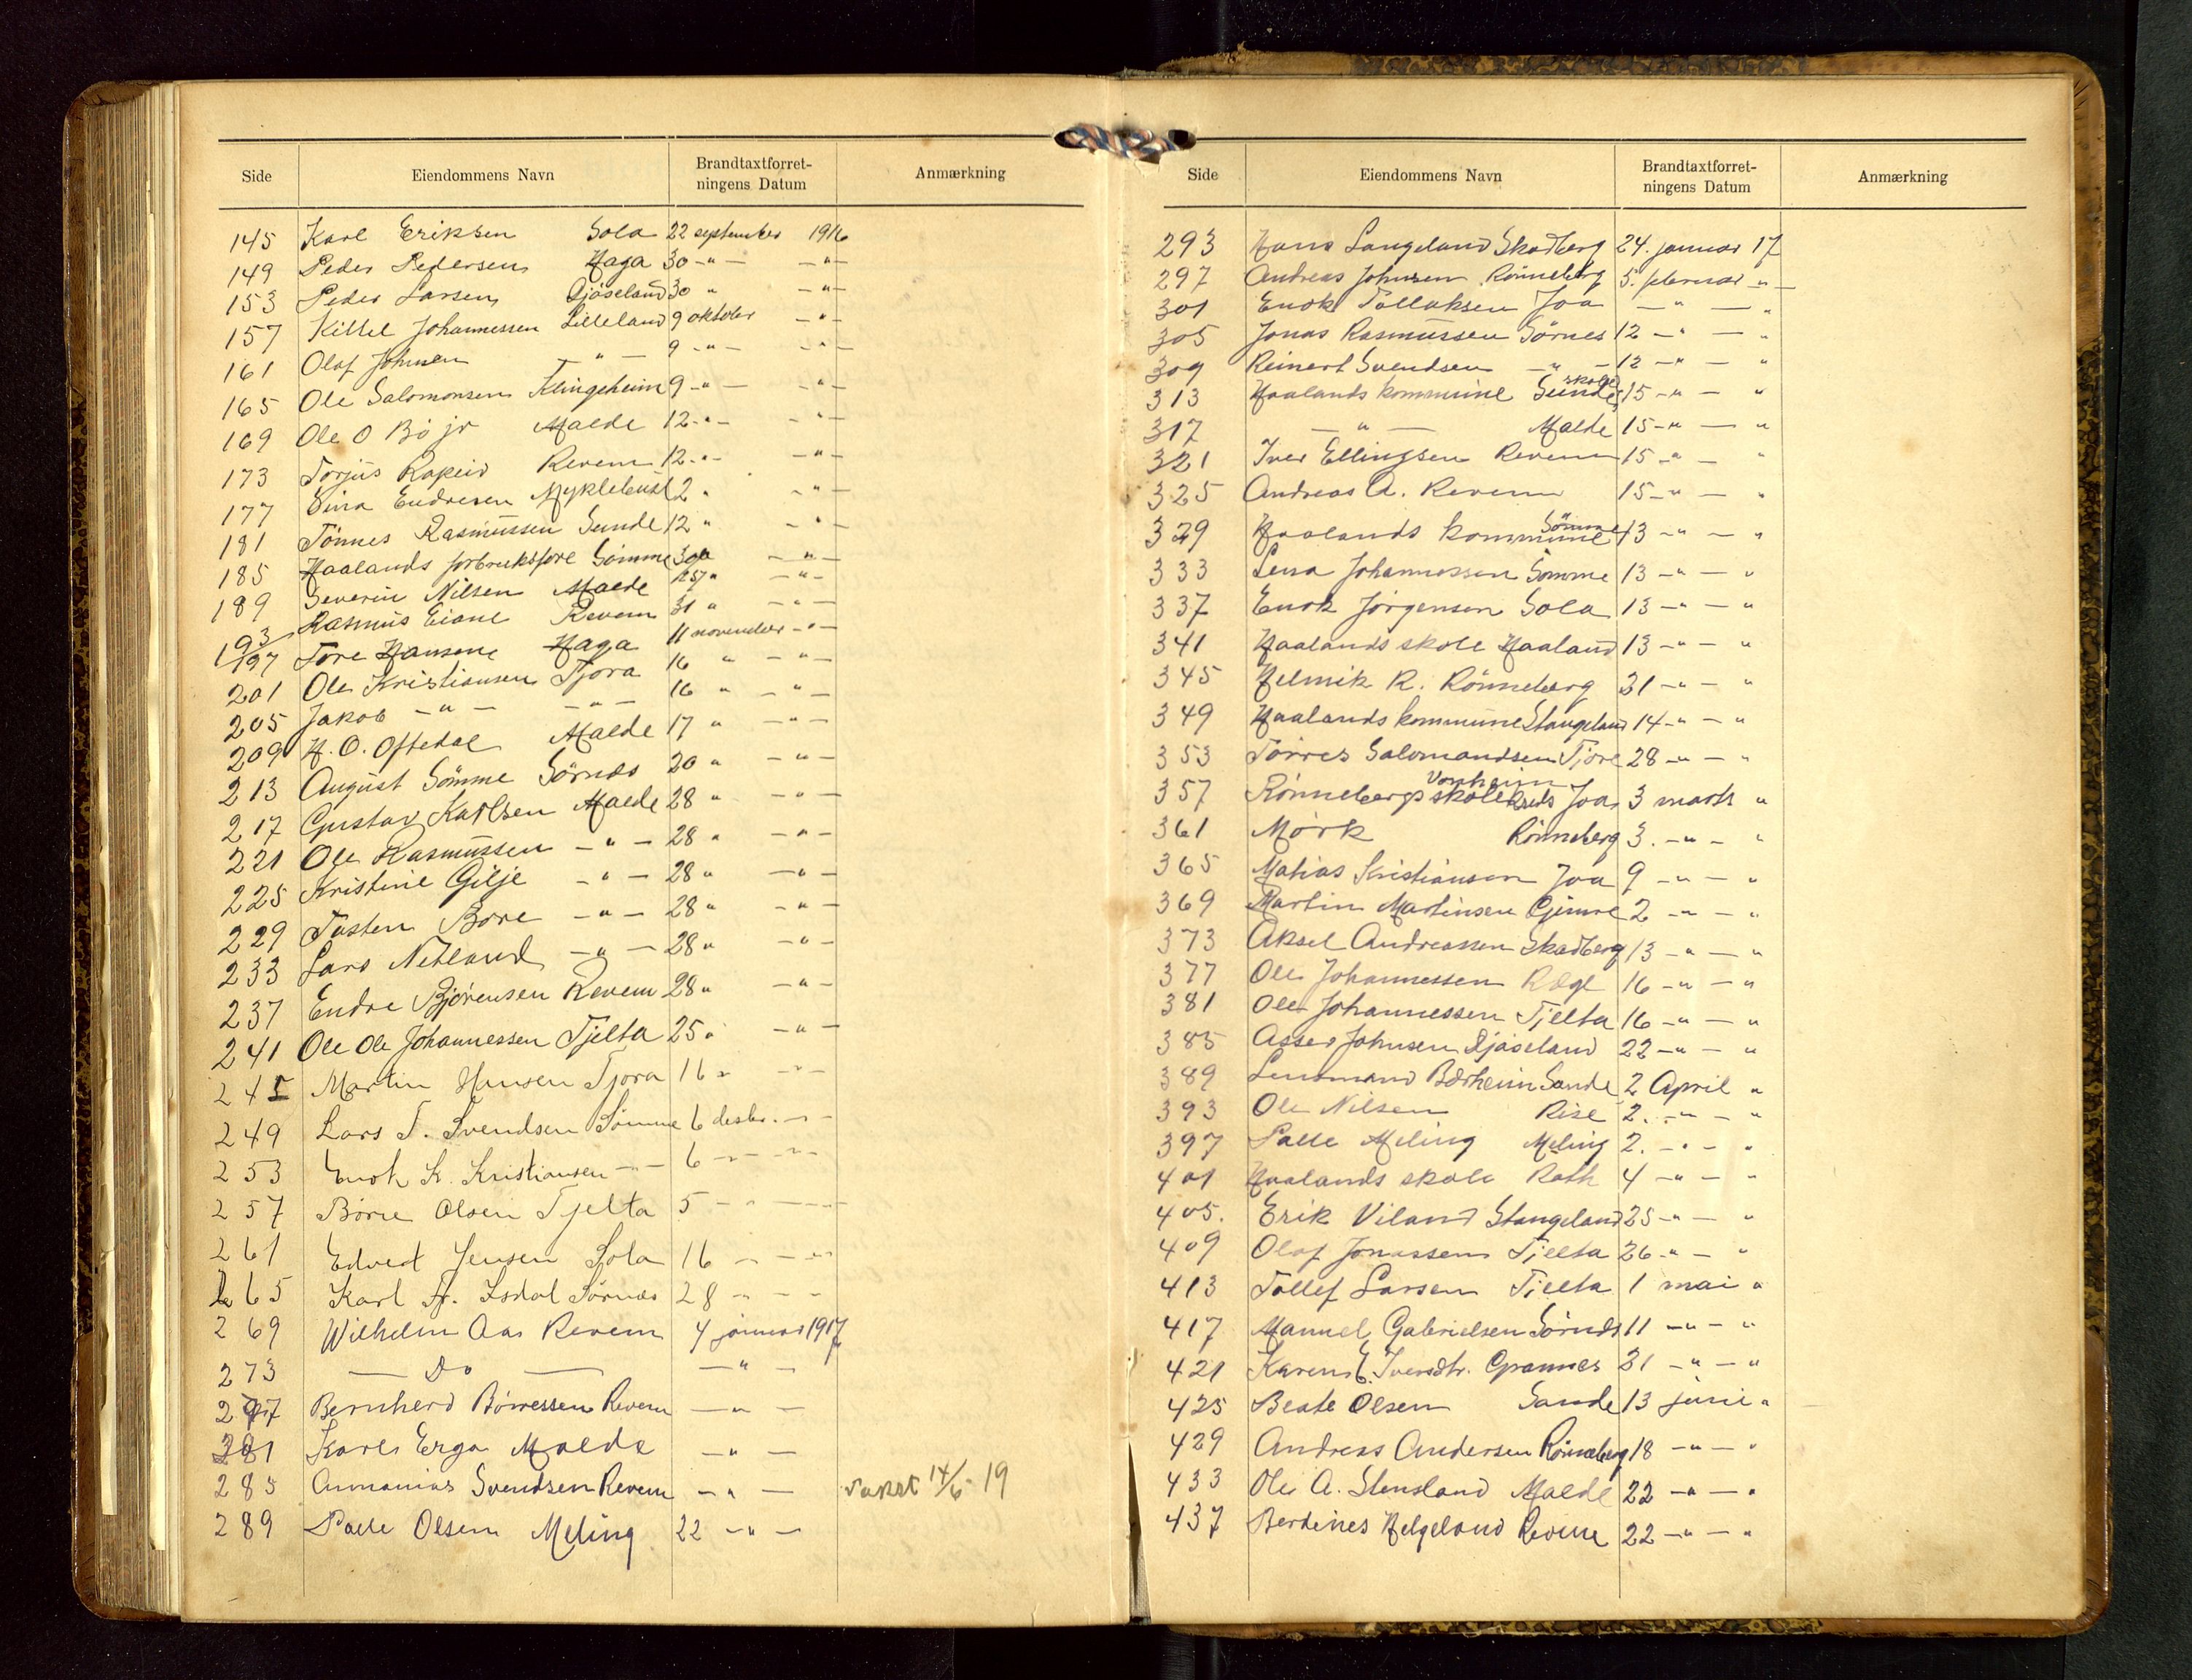 Side Eiendommens Navn Brandtaxtforret- Anmærkning
ningens Datum
145 Karl Eriksen Sola 22 september 1916
149 Peder Pedersen Haga 30 - " - - " -
153 Peder Larsen Djöseland 30 " - " -
157 Kittel Johannessen Lilleland 9 oktober - " -
161 Olaf Johnsen - " - 9 - " - - " -
165 Ole Salomonsen Klingeheim 9 - " - - " -
169 Ole O Bö jr Malde 12 - " - - " -
173 Torjus Rapeid Revem 12 - " - - " -
177 Sina Endresen Myklebust 2 " - " -
181 Tönnes Rasmussen Sunde 12 " - " -
185 Haalands forbruksfore Sömme 30 " - " -
189 Severin Nilsen Malde - " -
193 Rasmus Eiane Revem 31 " - " -
197 Tore Hansen Haga 11 november - " -
201 Ole Kristiansen Tjora 16 " - " -
205 Jakob - " - - " - 16 " - " -
209 H. O. Oftedal Malde 17 " - " -
213 August Sömme Sörnes 20 " - " -
217 Gustav Karlsen Malde 28 " - " -
221 Ole Rasmussen - " - 28 " - " -
225 Kristine Gilje - " - 28 " - " -
229 Tosten Bore - " - 28 " - " -
233 Lars Netland - " - 28 " - " -
237 Endre Bjørensen Revem 28 " - " -
241 Ole Ole Johannessen Tjelta 25 " - " -
245 Martin Hansen Tjora 16 " - " -
249 Lars T. Svendsen Sömme 6 desbr. - " -
253 Enok K. Kristiansen - " - 6 - " - - " -
257 Börre Olsen Tjelta 5 - " - - " -
261 Edvert Jensen Sola 16 - " - - " -
265 Karl Fr. Isdal Sörnes 28 - " - -
269 Wilhelm Aas Revem 4 januar 1917
273 - Do - - " -
277 Bernherd Börressen Revem - " -
281 Karl Erga Malde - " -
285 Annanias Svendsen Revem - " - Takst 14/6-19
289 Palle Olsen Meling 22 - " -
Side Eiendommens Navn Brandtaxtforret- Anmærkning
ningens Datum
293 Hans Langeland Skadberg 24. januar 17
297 Andreas Johnsen Rönneberg 5. februar - " -
301 Enok Tollaksen Joa - " - "
305 Jonas Rasmussen Sörnes 12 - " - "
309 Reinert Svendsen - " - 12 - " - "
313 Haalands kommune Sunde skole 15 - " - "
317 - " - Malde 15 - " - "
321 Iver Ellingsen Revem 15 - " - "
325 Andreas A. Revem 15 - " - "
329 Haalands kommune Sömme 13 - " - "
333 Lena Johannessen Sömme 13 - " - "
337 Enok Jörgensen Sola 13 - " - "
341 Haalands skole Haaland 13 - " - "
345 Helmik R. Rönneberg 21 - " - "
349 Haalands kommune Stangeland 14 - " - "
353 Torres Salomandsen Tjore 28 - " - "
357 Rönnebergs skolekreds Vonheim Joa 3 marts "
361 Mörk Rönneberg 3. - " - "
365 Matias Kristiansen Joa 9 - " - "
369 Martin Martinsen Gjimre 2 - " - "
373 Aksel Andreassen Skadberg 13 - " - "
377 Ole Johannessen Rægl 16 - " - "
381 Ole Johannessen Tjelta 16 - " - "
385 Asser Johnsen Djöseland 22 - " - "
389 Lensmand Bærheim Sande 2 April "
393 Ole Nilsen Rise 2. - " - "
397 Palle Meling Meling 2. - " - "
401 Haalands skole Roth 4 - " - "
405. Erik Viland Stangeland 25 - " - "
409 Olaf Jonassen Tjelta 26 - " - "
413 Tollef Larsen Tjelta 1 mai "
417 Manuel Gabrielsen Sörnes 11 - " - "
421 Karen E. Iversdtr. Grannes 31 - " - "
425 Beate Olsen Sande 13 juni "
429 Andreas Andersen Rönneberg 18 - " - "
433 Ole A. Stensland Malde 22 - " - "
437 Berdines Helgeland Revem 22 - " - "